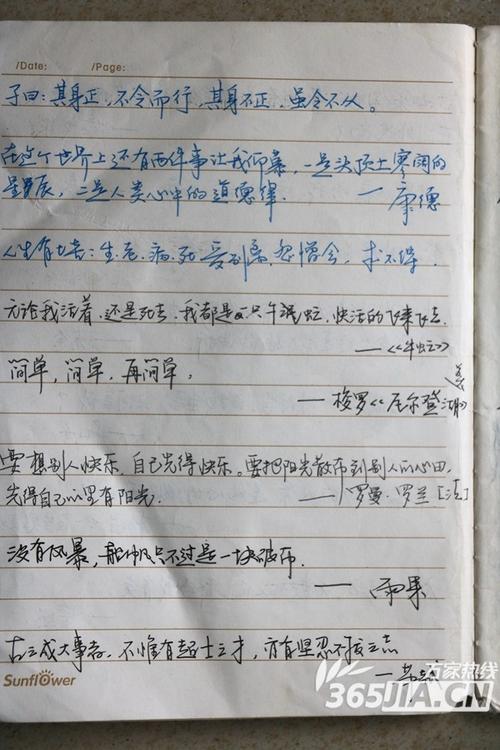 /Date: /Page:
子曰：其身正，不令而行，其身不正，虽令不从。
在这个世界上还有两件事让我仰慕，一是头顶上寥阔的
星辰，二是人类心中的道德律.
— 康德
人生有七苦：生.老.病.死 爱别离.怨憎会，求不得.
无论我活着，还是死去，我都是一只牛虻，快活的飞来飞去.
—《牛虻》
简单，简单，再简单，
— 梭罗《瓦尔登湖》
要想别人快乐，自己先得快乐。要把阳光散布到别人的心田，
先得自己心里有阳光.
— 罗曼·罗兰[法]
没有风暴，船帆只不过是一块破布.
— 雨果
古之成大事者，不惟有超士之才，亦有坚忍不拔之志
Sunflower
万家热线
365JIA.CN